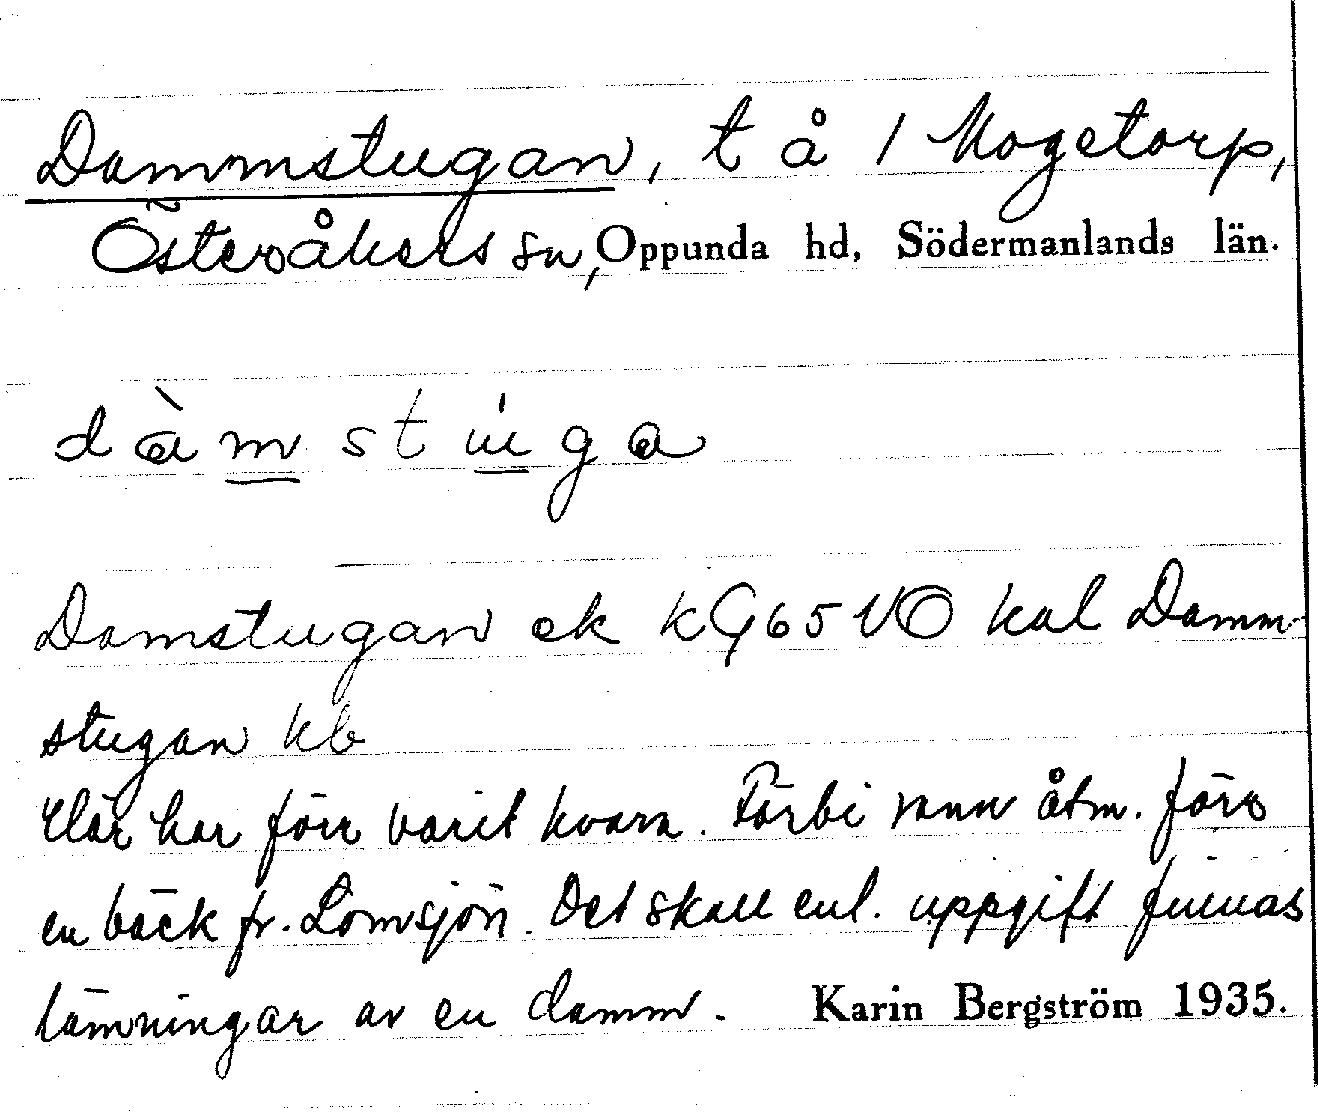 Dammstugan, t å 1 Mogetorp,
Österåkers sn, Oppunda hd, Södermanlands län.
dàmstúga
Damstugan ek kG65VO kal Damm-
stugan kb
Här har förr varit kvarn. Förbi rann åtm. förr
en bäck fr. Lomsjön. Det skall enl. uppgift finnas
lämningar av en damm. Karin Bergström 1935.